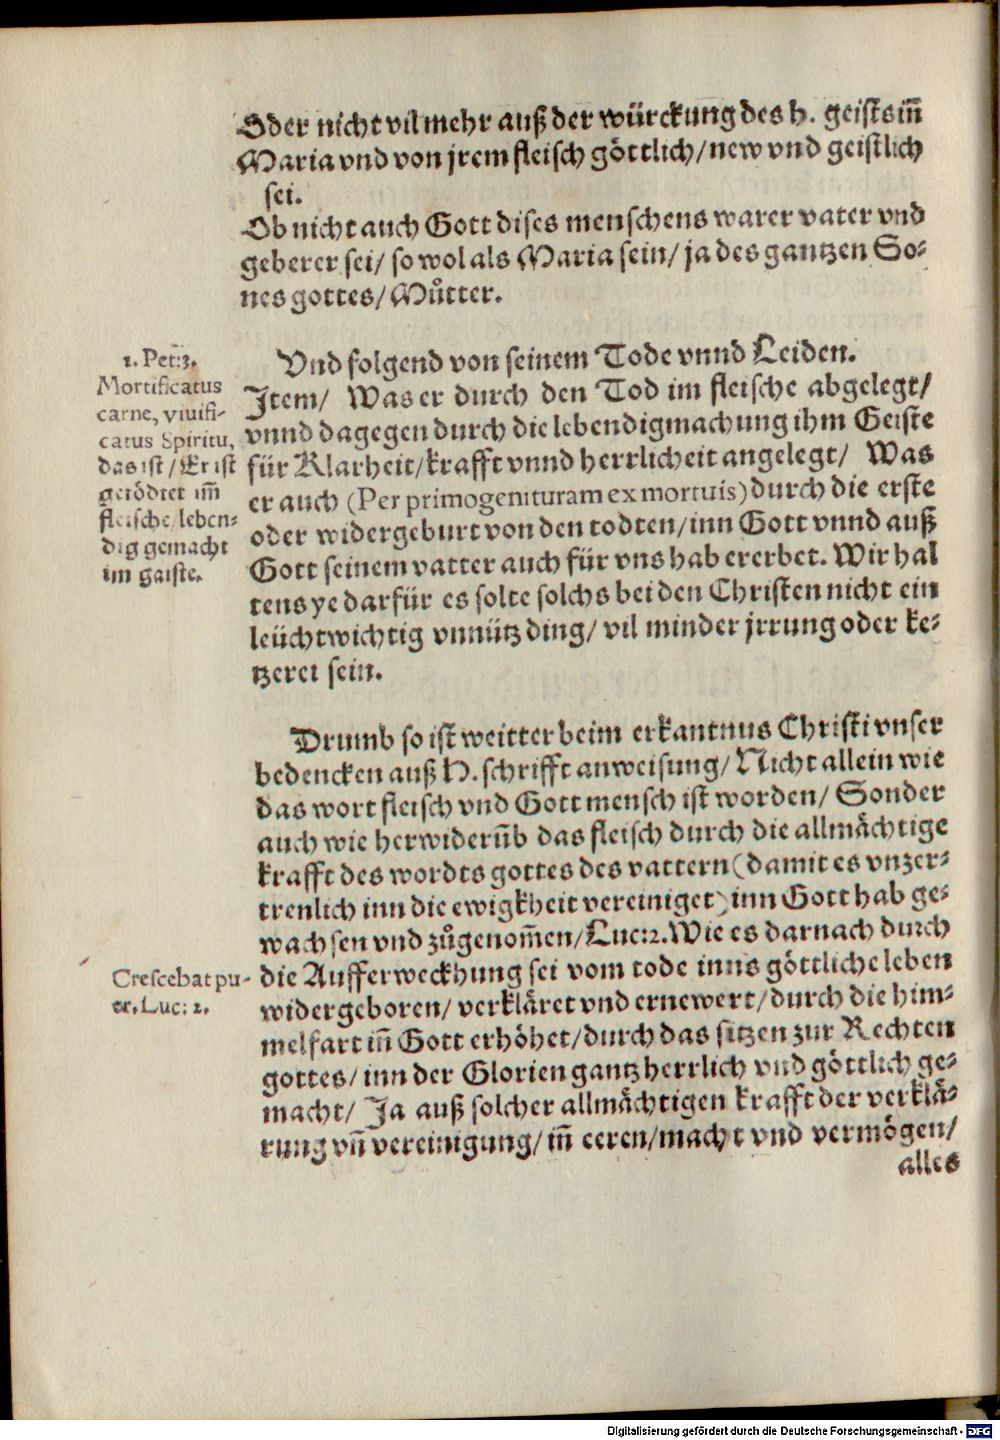 Oder nicht vil mehr auß der würckung des h. geists iñ
Maria vnd von jrem fleisch göttlich/ new vnd geistlich
sei.
Ob nicht auch Gott dises menschens warer vater vnd
geberer sei/ so wol als Maria sein/ ja des gantzen So-
nes gottes/ Můtter.
Vnd folgend von seinem Tode vnnd Leiden.
Item/ Was er durch den Tod im fleische abgelegt/
vnnd dagegen durch die lebendigmachung ihm Geiste
für Klarheit/ krafft vnnd herrlicheit angelegt/ Was
er auch (Per primogenituram ex mortuis) durch die erste
oder widergeburt von den todten/ inn Gott vnnd auß
Gott seinem vatter auch für vns hab ererbet. Wir hal
tens ye darfür es solte solchs bei den Christen nicht ein
leüchtwichtig vnnütz ding/ vil minder jrrung oder ke-
tzerei sein.
1. Pet: 3.
Mortificatus
carne, viuifi-
catus Spiritu,
das ist/ Er ist
getödtet im̃
fleische/ leben-
dig gemacht
im gaiste.
Drumb so ist weitter beim erkantnus Christi vnser
bedencken auß H. schrifft anweisung/ Nicht allein wie
das wort fleisch vnd Gott mensch ist worden/ Sonder
auch wie herwiderũb das fleisch durch die allmächtige
krafft des wordts gottes des vattern (damit es vnzer-
trenlich inn die ewigkheit vereiniget) inn Gott hab ge-
wachsen vnd zůgenom̃en/ Luc: 2. Wie es darnach durch
die Aufferweckhung sei vom tode inns göttliche leben
widergeboren/ verkläret vnd ernewert/ durch die him-
melfart iñ Gott erhöhet/ durch das sitzen zur Rechten
gottes/ inn der Glorien gantz herrlich vnd göttlich ge-
macht/ Ja auß solcher allmächtigen krafft der verklä-
rung vñ vereinigung/ iñ eeren/ macht vnd vermögen/
alles
Crescebat pu-
er. Luc: 2.
Digitalisierung gefördert durch die Deutsche Forschungsgemeinschaft - DFG